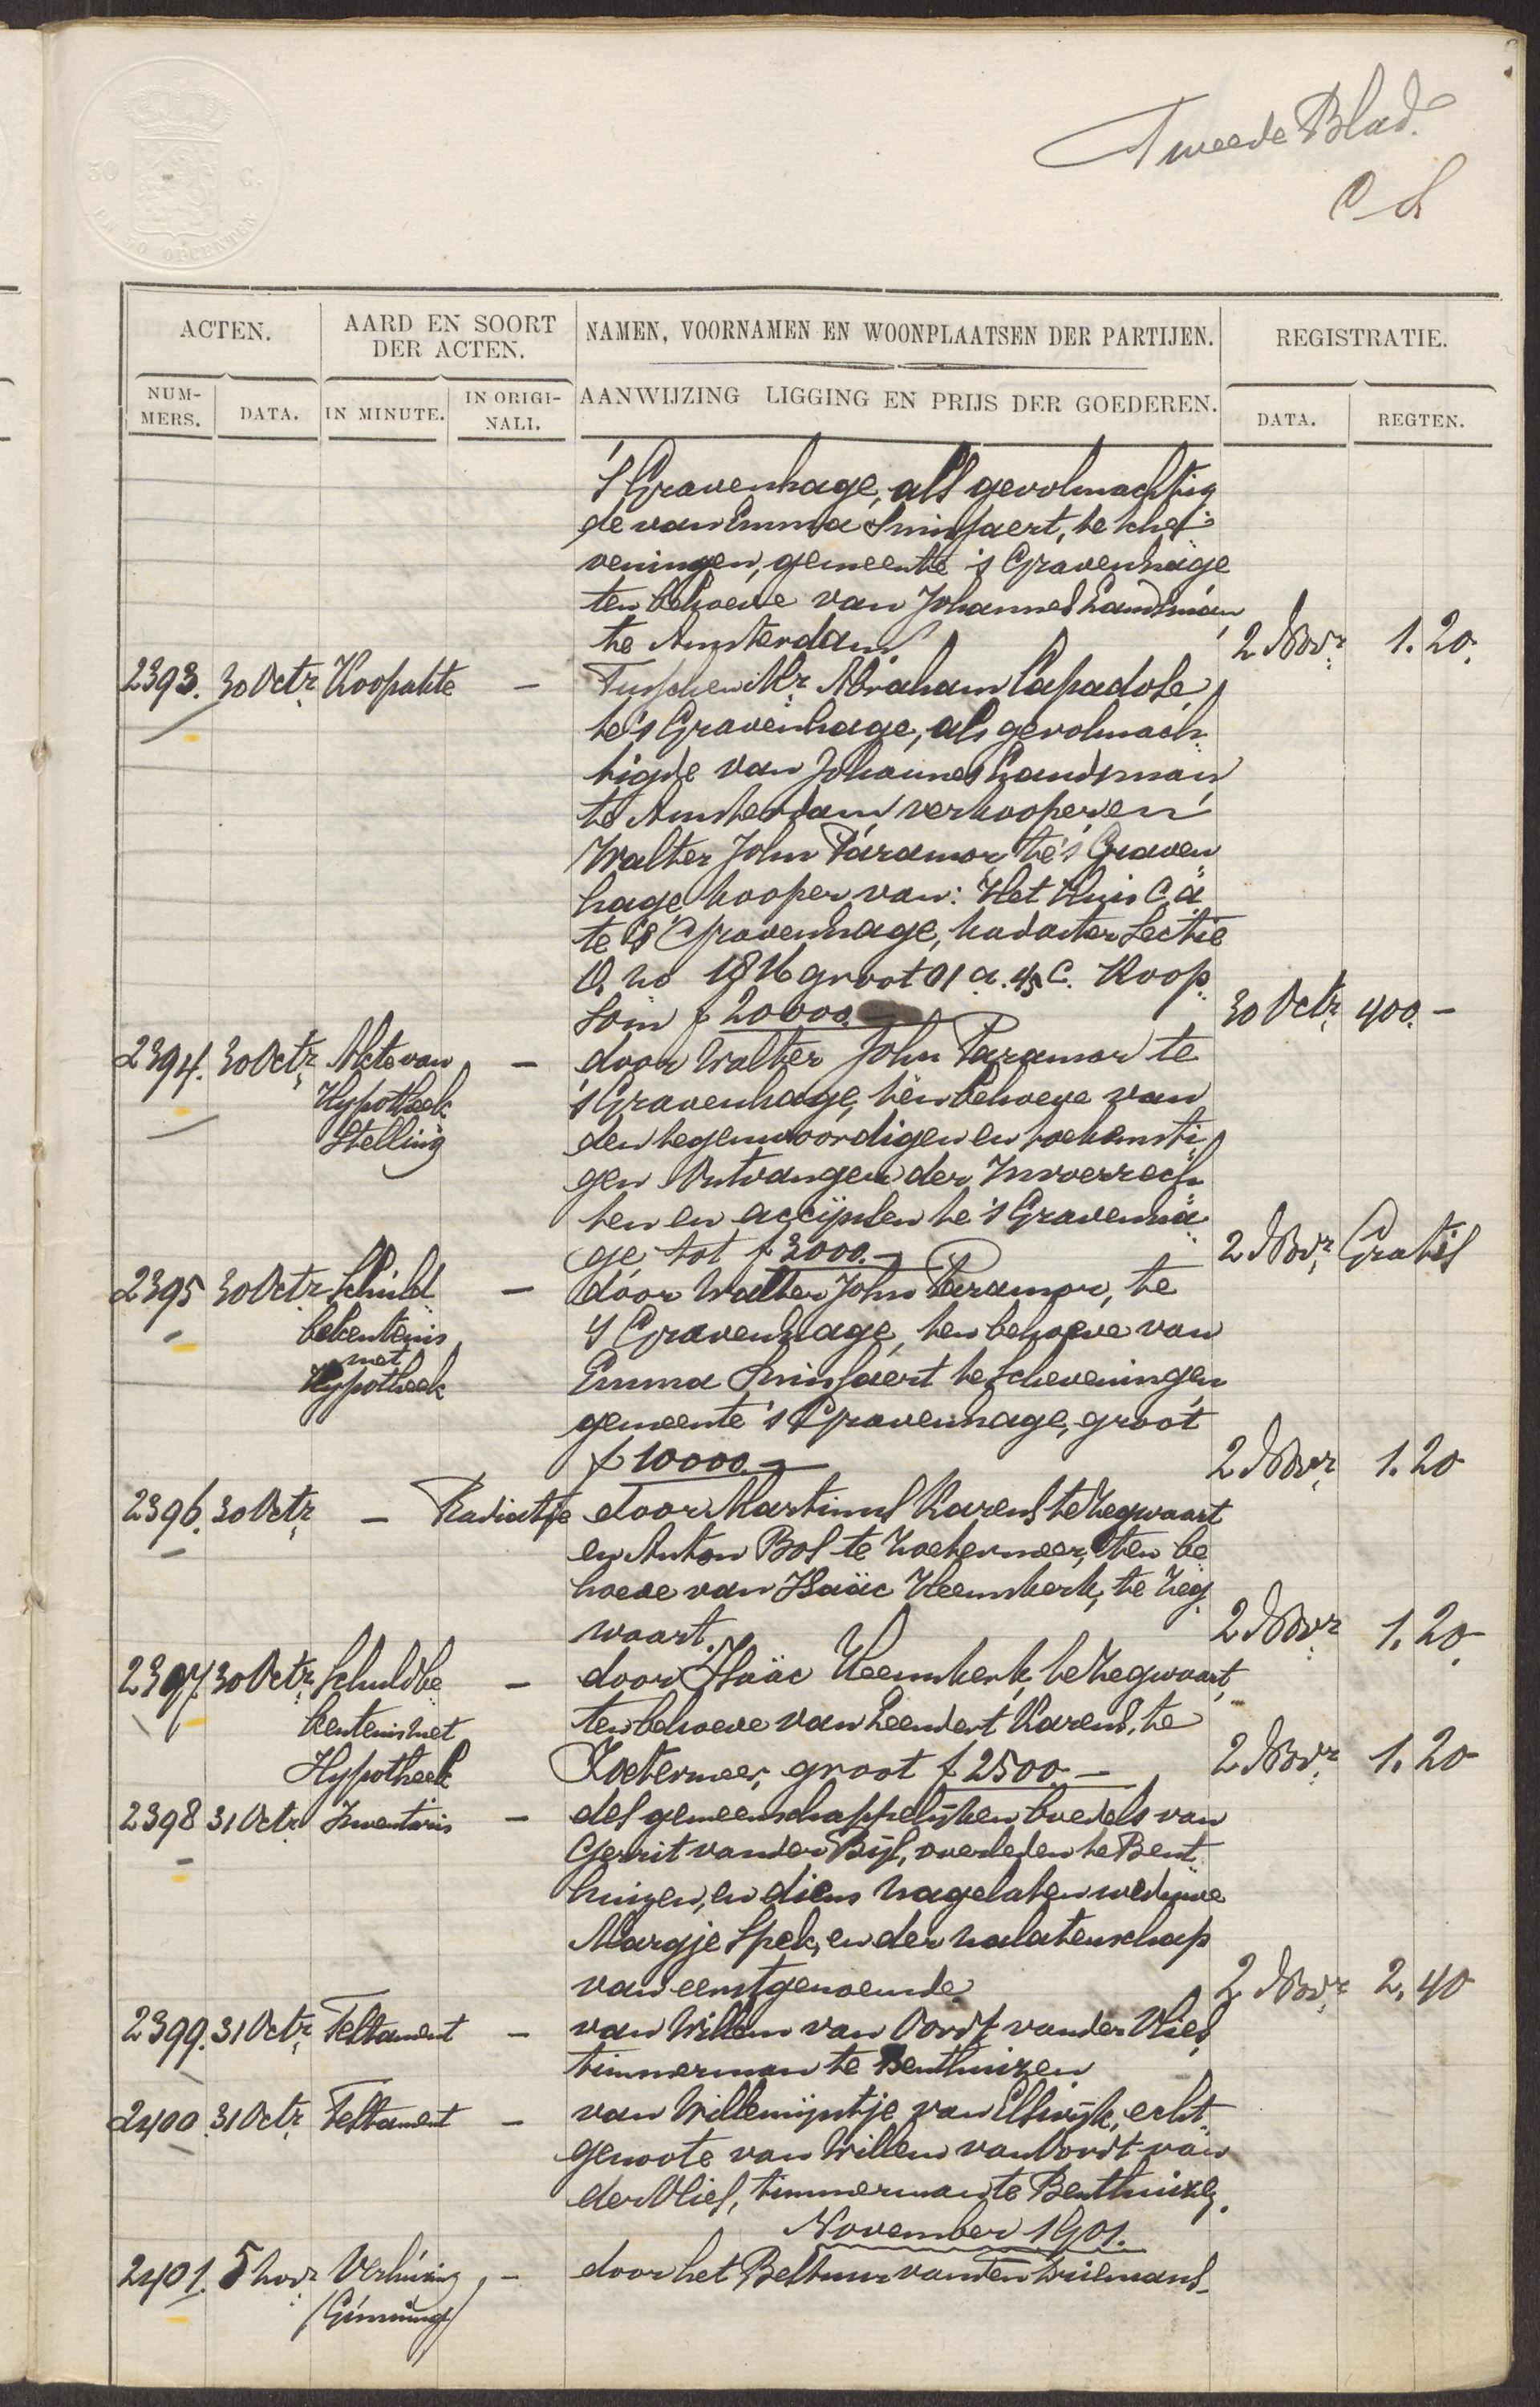 Tweede Blad.
50 C.
ACTEN. AARD EN SOORT DER ACTEN. NAMEN, VOORNAMEN EN WOONPLAATSEN DER PARTIJEN. REGISTRATIE.
NUMMERS. DATA. IN MINUTE. IN ORIGINALI. AANWIJZING LIGGING EN PRIJS DER GOEDEREN. DATA. REGTEN.
's Gravenhage, als gevolmachtig
de van Emma Snissaert, te Sche
veningen, gemeente 's Gravenhage
ten behoeve van Johannes Landsman,
te Amsterdam. 2 Novr 1.20.
2393. 30 Octr Koopakte — Tusschen Mr Abraham Capadose,
te 's Gravenhage, als gevolmach
tigde van Johannes Landsman
te Amsterdam, verkooper en
Walter John Paramor, te 's Graven
hage kooper van: Het Huis C.a
te 's Gravenhage, kadaster Sectie
no 1816 groot 01 a. 45 C. Koop
som f 20000. 30 Octr 400.—
2394. 30 Octr Akte van — door Walter John Paramor te
Hypotheek 's Gravenhage, ten behoeve van
Stelling den tegenwoordigen en toekomsti
gen Ontvanger der Invoerrech
ten en accijnsen te 's Gravenha
ge, tot f 3000.— 2 Novr Gratis
2395 30 Octr Schuld — door Walter John Paramor, te
bekentenis 's Gravenhage, ten behoeve van
met
Hypotheek Emma Snissaert te Scheveningen
gemeente 's Gravenhage, groot
f 10000.— 2 Novr 1.20
2396. 30 Octr — Radiatie door Martinus Karens te Zegwaart
en Anton Bos te Zoetermeer, ten be
hoeve van Isaäc Heemskerk, te Zeg
waart. 2 Novr 1.20.
2397. 30 Octr Schuldbe — door Isaäc Heemskerk, te Zegwaart,
kentenis met ten behoeve van Leendert Karens, te
Hypotheek Zoetermeer, groot f 2500.— 2 Novr 1.20
2398 31 Octr Inventaris — des gemeenschappelijken boedels van
Gerrit van der Bijl, overleden te Bent
huizen, en diens nagelaten weduwe
Margje Spek, en der nalatenschap
van eerstgenoemde 2 Novr 2.40
2399. 31 Octr Testament — van Willem van Oordt van der Vlies,
timmerman te Benthuizen
2400. 31 Octr Testament — van Willemijntje van Elswijk, echt
genoote van Willem van Oordt van
der Vlies, timmerman te Benthuizen.
November 1901.
2401. 5 Novr Verhuring — door het Bestuur van den
(Gunning)